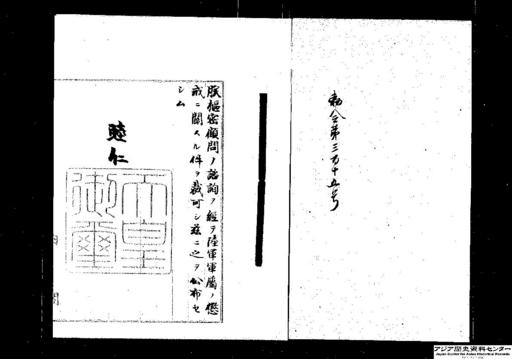 勅令第三百十五号
朕樞密顧問ノ諮詢ノ經テ陸軍軍屬ノ懲
戒ニ關スル件ヲ裁可シ茲ニ之ヲ公布セ
シム
睦仁
天皇
御璽
内閣
アジア歴史資料センター
Japan Center for Asian Historical Records